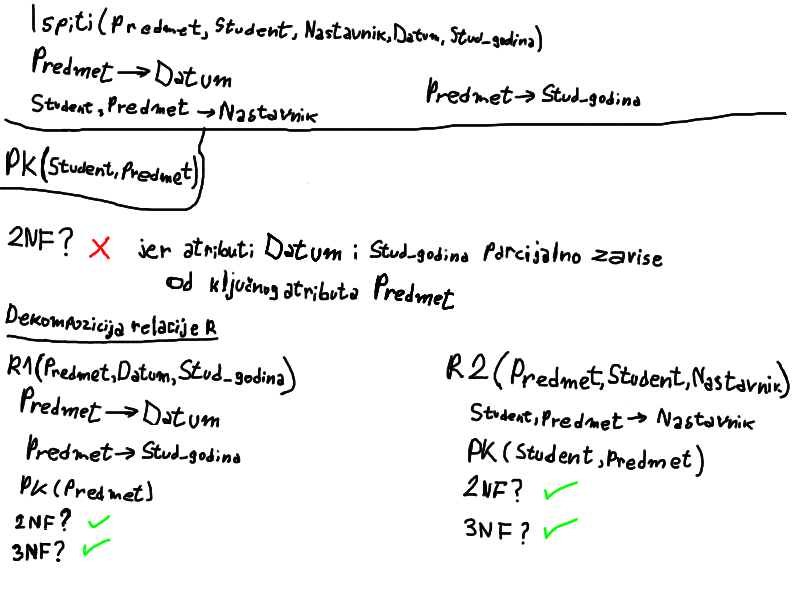 Ispiti(Predmet, Student, Nastavnik, Datum, Stud_godina)
Predmet → Datum
Student, Predmet → Nastavnik
Predmet → Stud_godina
PK(Student, Predmet)
2NF? X jer atributi Datum i Stud_godina parcijalno zavise
od ključnog atributa Predmet
Dekompozicija relacije R
R1(Predmet, Datum, Stud_godina)
Predmet → Datum
Predmet → Stud_godina
PK(Predmet)
2NF? ✓
3NF? ✓
R2(Predmet, Student, Nastavnik)
Student, Predmet → Nastavnik
PK(Student, Predmet)
2NF? ✓
3NF? ✓